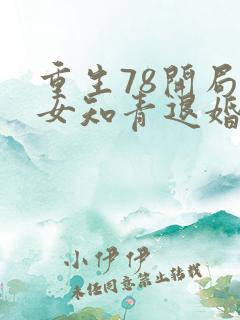 重生78開局
女知青退婚
小伊伊
未经同意禁止转载